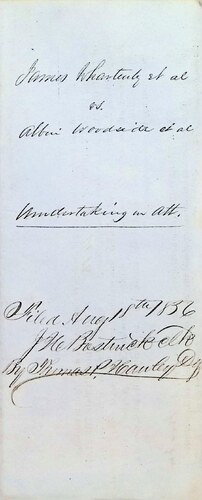 James Whartenby et al
vs.
Albin Woodside et al
Undertaking on Att.
Filed Augt 18th 1856
J H Bostwick Clk
By Thomas P. Hawley Dy